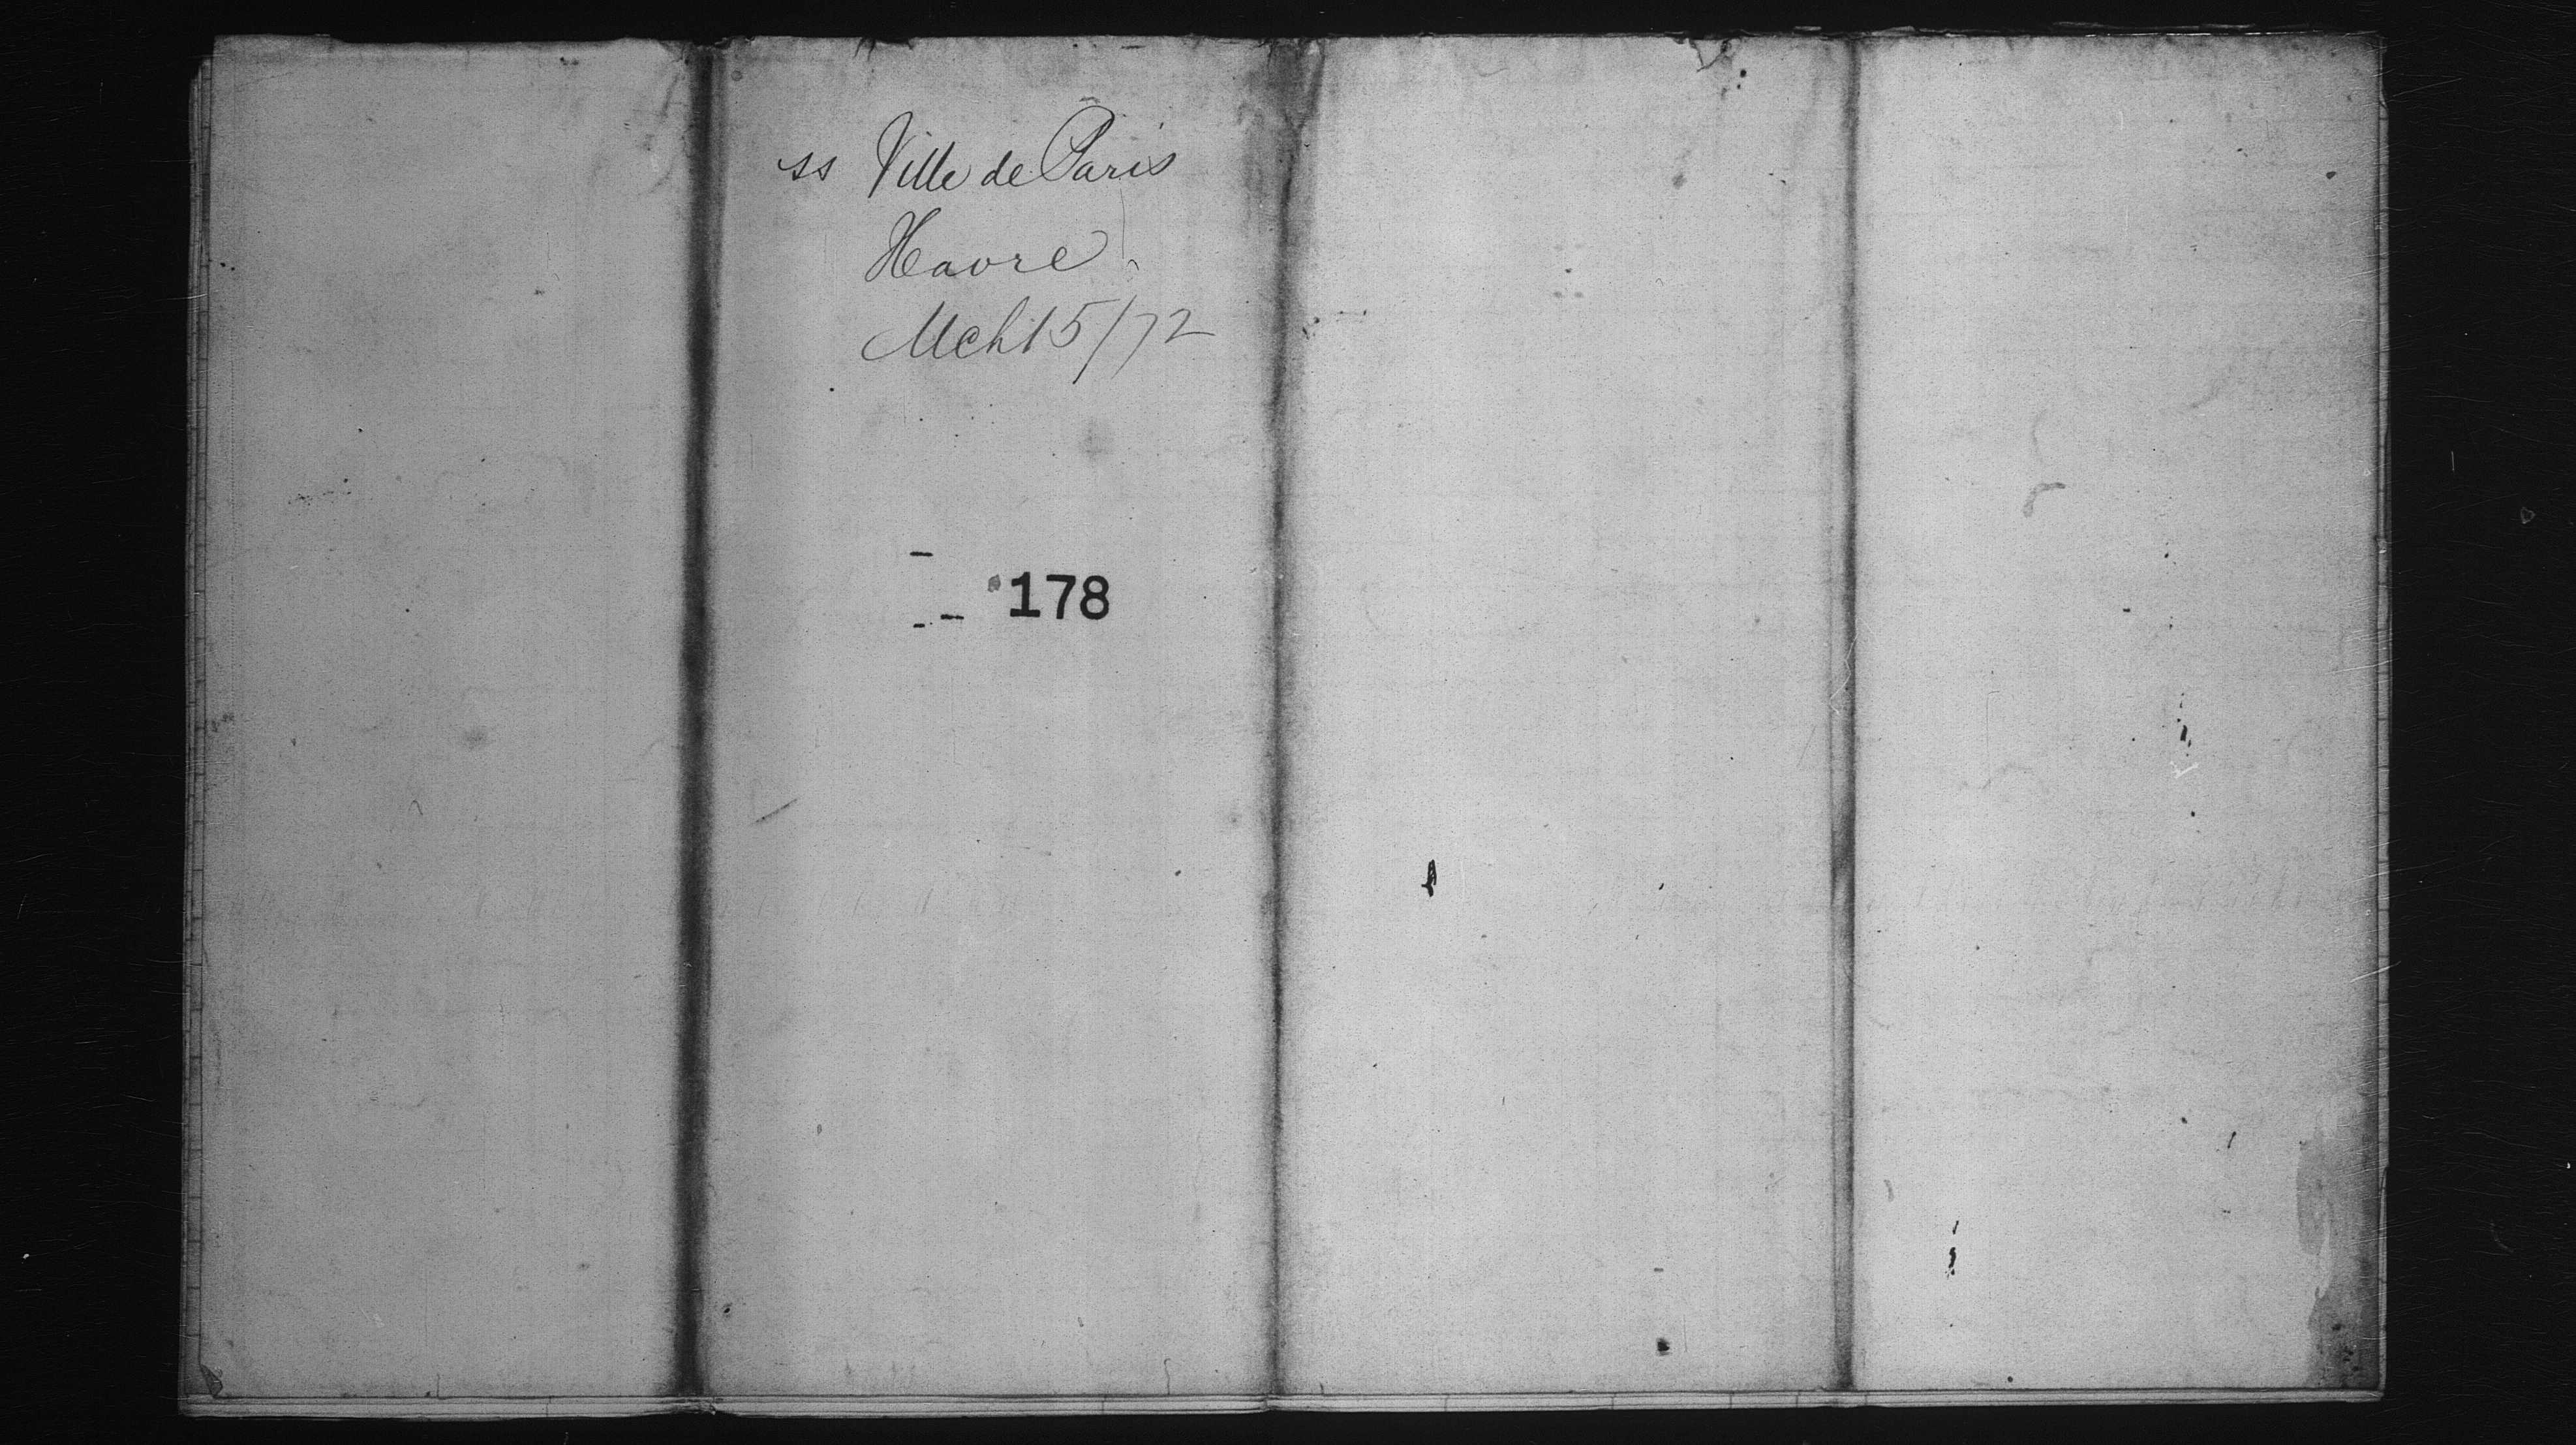 ss Ville de Paris
Havre
Mch 15/72
178